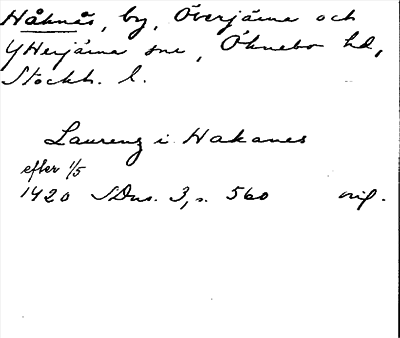 Håknäs, by, Överjärna och
Ytterjärna snr, Öknebo hd,
Stockh. l.
Laurenz i Hakanes
efter 1/5
1420 SDns. 3, s. 560 orig.